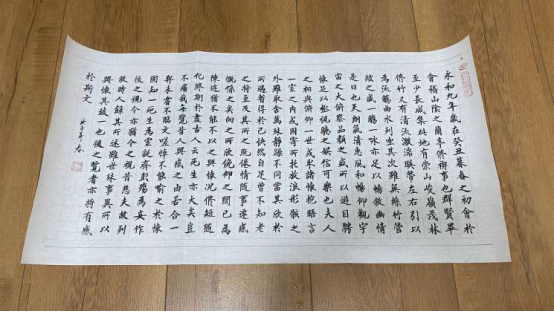 永和九年歲在癸丑暮春之初會於
會稽山陰之蘭亭脩禊事也群賢畢
至少長咸集此地有崇山峻嶺茂林
脩竹又有清流激湍映帶左右引以
為流觴曲水列坐其次雖無絲竹管
絃之盛一觴一詠亦足以暢敘幽情
是日也天朗氣清惠風和暢仰觀宇
宙之大俯察品類之盛所以遊目騁
懷足以極視聽之娛信可樂也夫人
之相與俯仰一世或取諸懷抱晤言
一室之內或因寄所托放浪形骸之
外雖取舍萬殊靜躁不同當其欣於
所遇暫得於己快然自足曾不知老
之將至及其所之既倦情隨事遷感
慨係之矣向之所欣俛仰之間已為
陳迹猶不能不以之興懷況脩短隨
化終期於盡古人云死生亦大矣豈
不痛哉每覽昔人興感之由若合一
契未嘗不臨文嗟悼不能喻之於懷
固知一死生為虛誕齊彭殤為妄作
後之視今亦猶今之視昔悲夫故列
敘時人錄其所述雖世殊事異所以
興懷其致一也後之覽者亦將有感
於斯文